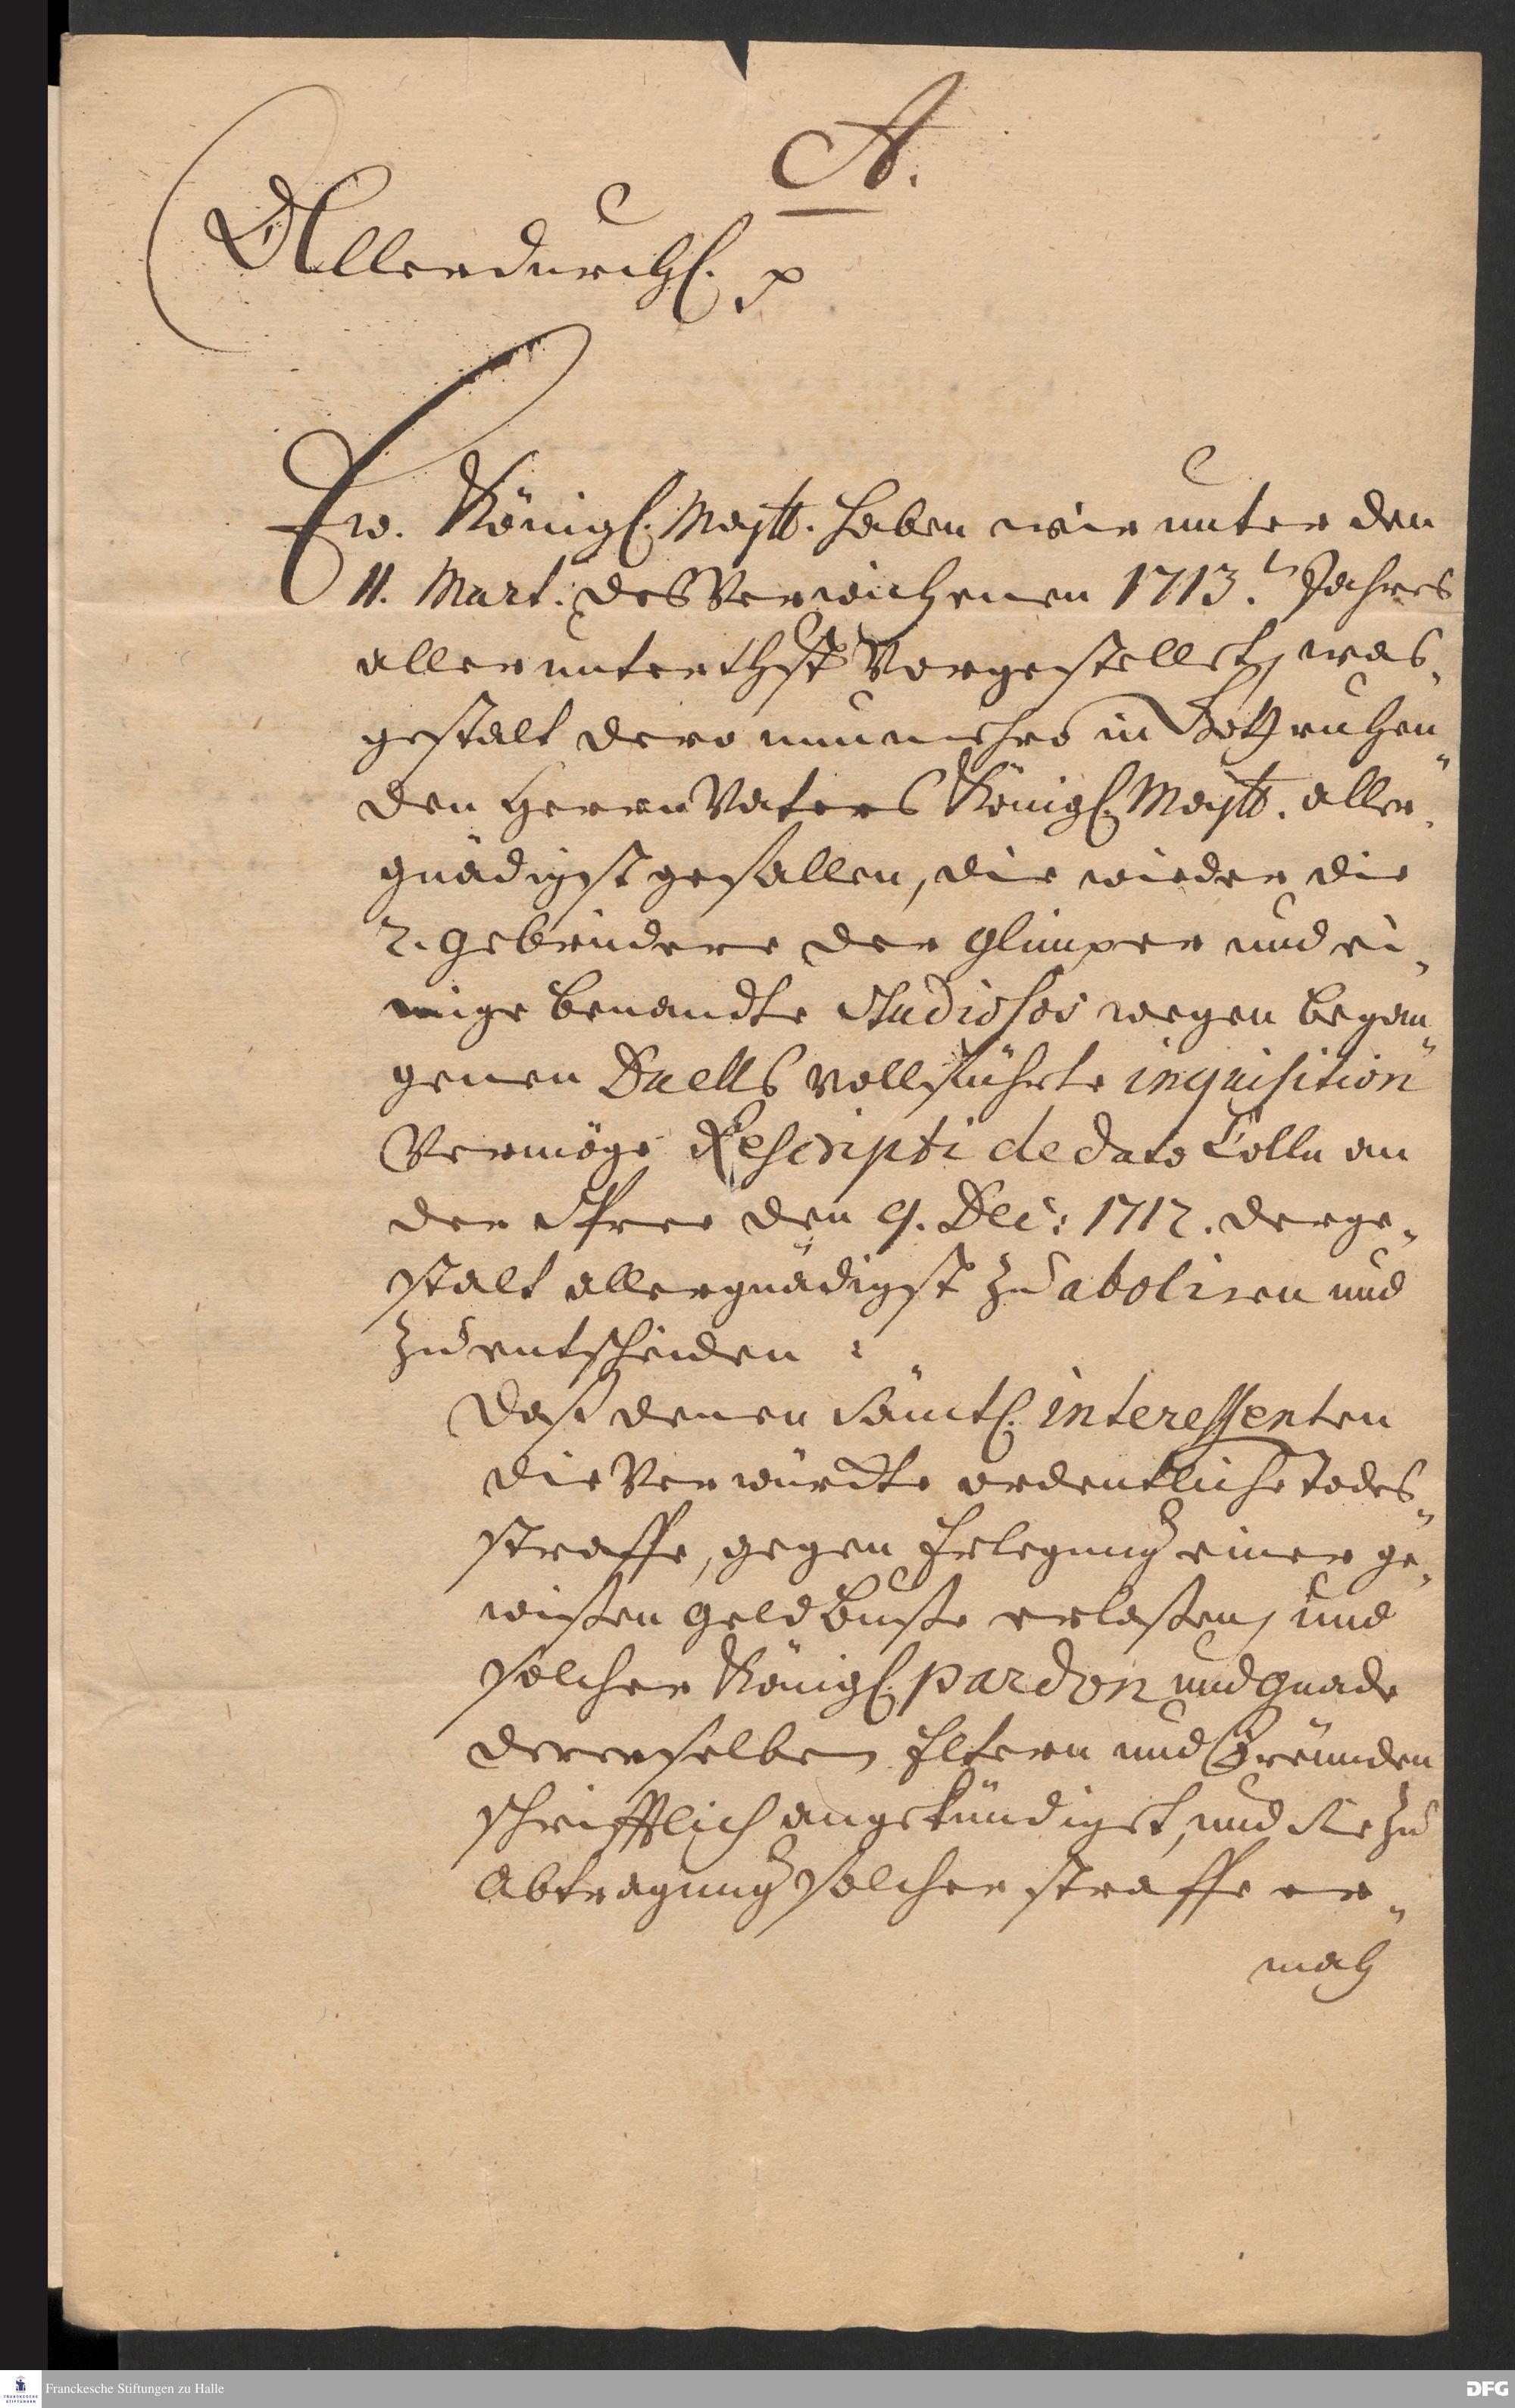 A.
Allerdurchl. p
Ew. Königl. Maytt. haben wir unter den
11. Mart. des Verwichenen 1713.ten Jahres
allerunterthgst Vorgestellet, was„
gestalt dero nunmehro in Gott ruhen„
den Herrn Vaters Königl. Maytt. aller„
gnädigst gefallen, die wieder die
2. Gebrüdere der Glimper und ei„
nige benandte Studiosos wegen began„
genen Duells vollführte inquisition
Vermöge Rescripti de dato Cölln an
der Spree den 9. Dec: 1712. derge„
stalt allergnädigst zu aboliren und
zu entscheiden :
Daß denen sämtl. interessenten
die Verwürckte ordentliche Todes„
straffe, gegen Erlegung einer ge„
wißen Geldbuße erlaßen, und
solcher Königl. pardon und Gnade
denenselben Eltern und Freünden
schrifftlich angekündiget, und Sie zu
Abtragung solcher straffe er„
mah
Franckesche Stiftungen zu Halle
FRANCKESCHE STIFTUNGEN
DFG